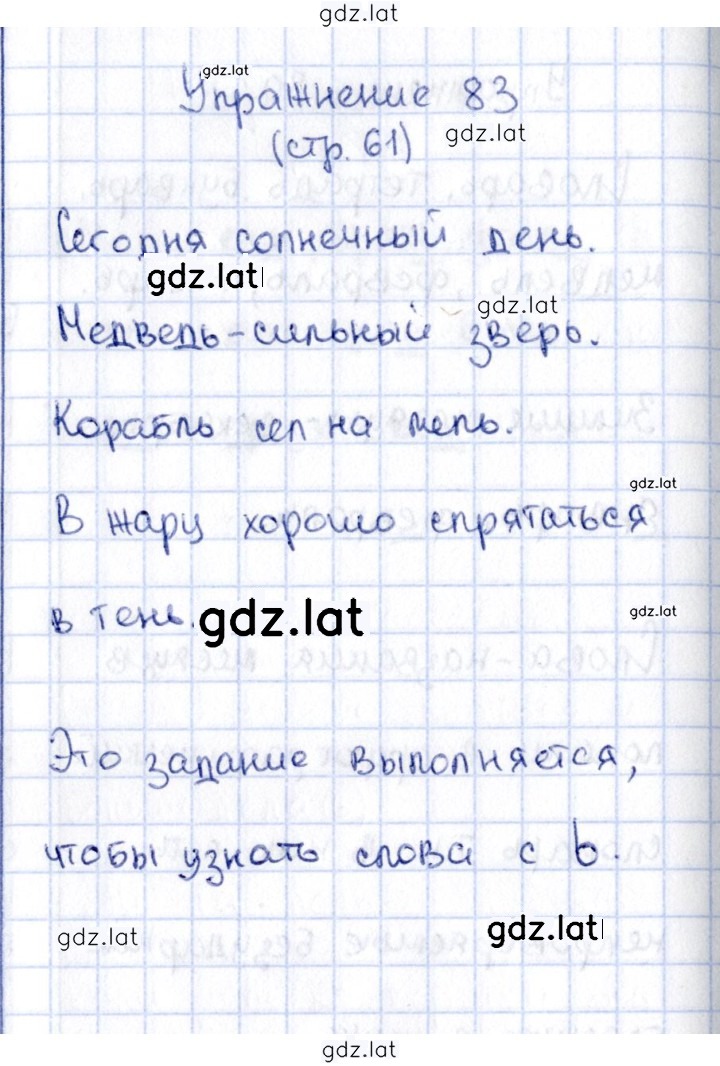 gdz.lat
gdz.lat
Упражнение 83
(стр. 61) gdz.lat
Сегодня солнечный день.
gdz.lat
gdz.lat
Медведь-сильный зверь.
Корабль сел на мель.
gdz.lat
В жару хорошо спрятаться
в тень. gdz.lat gdz.lat
Это задание выполняется,
чтобы узнать слова с ь.
gdz.lat gdz.lat
gdz.lat